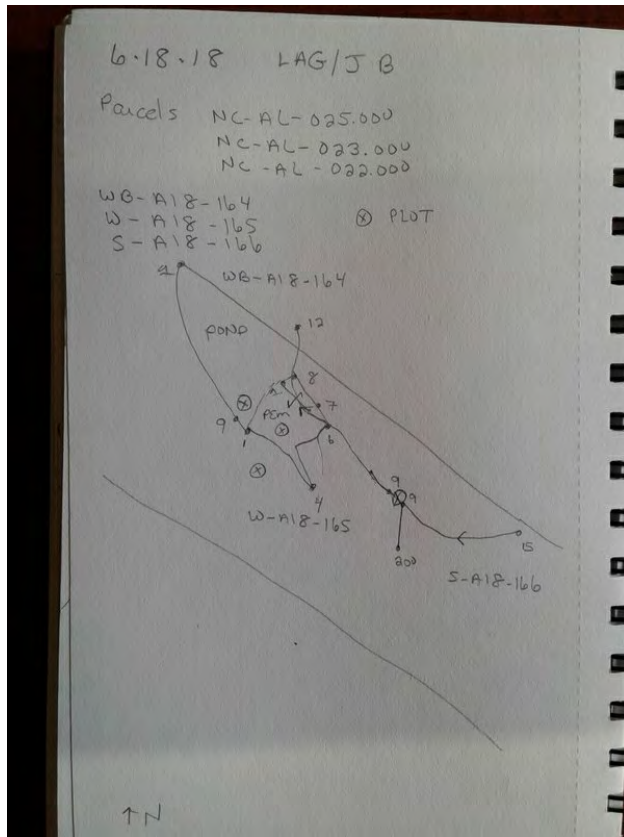 6.18.18 LAG/JB
Parcels NC-AL-025.000
NC-AL-023.000
NC-AL-022.000
WB-A18-164
W-A18-165
S-A18-166
⊗ PLOT
WB-A18-164
12
POND
8
7
PEM
9
1
6
4
9
9
W-A18-165
15
200
S-A18-166
↑N